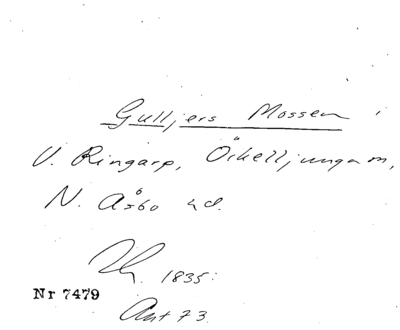 Gulljers Mossen i
V. Ringarp, Örkelljunga sn,
N. Åsbo hd.
1835:
Nr 7479
Ant 73